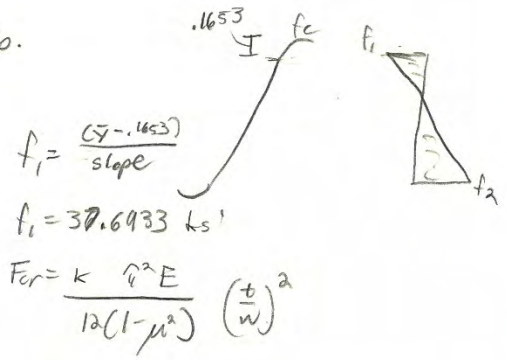 b.
.1653
fc
f₁
f₂
f₁ = (ȳ - .1653) / slope
f₁ = 37.6933 ksi
Fcr = k π² E / 12(1-μ²) (t/w)²